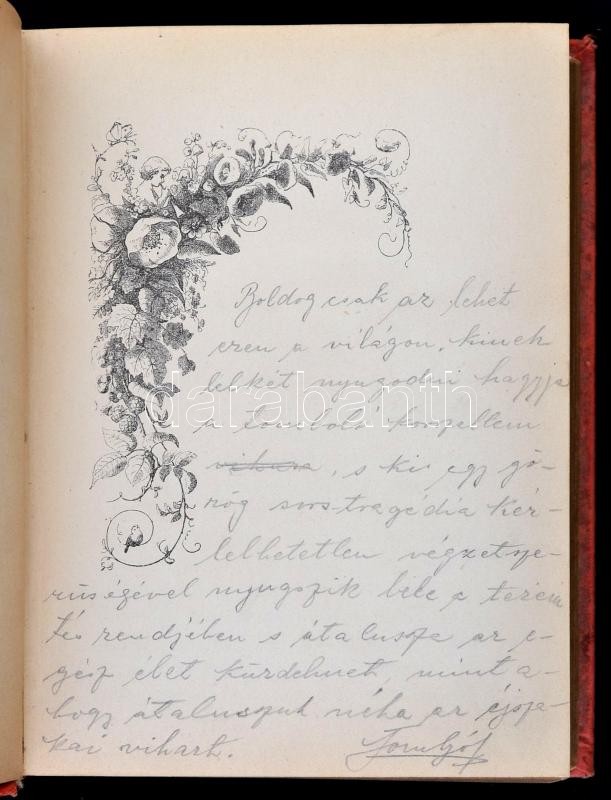 Boldog csak az lehet
ezen a világon, kinek
lelkét nyugodni hagyja
a tomboló
s ki egy gö-
rög sors-tragédia kér-
lelhetetlen végzetsze-
rüségével nyugszik bele a terem
tés rendjében s átalussza az e-
gész élet küzdelmet, mint a-
hogy átaluszuk néha az éjsza-
kai vihart.
darabanth